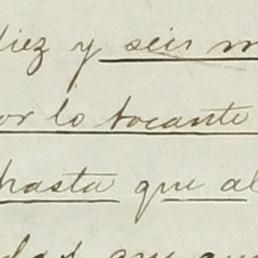 diez y seis m
or lo tocante
hasta que al